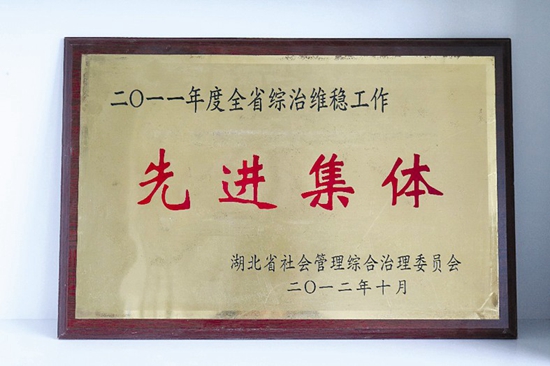 二〇一一年度全省综治维稳工作
先进集体
湖北省社会管理综合治理委员会
二〇一二年十月